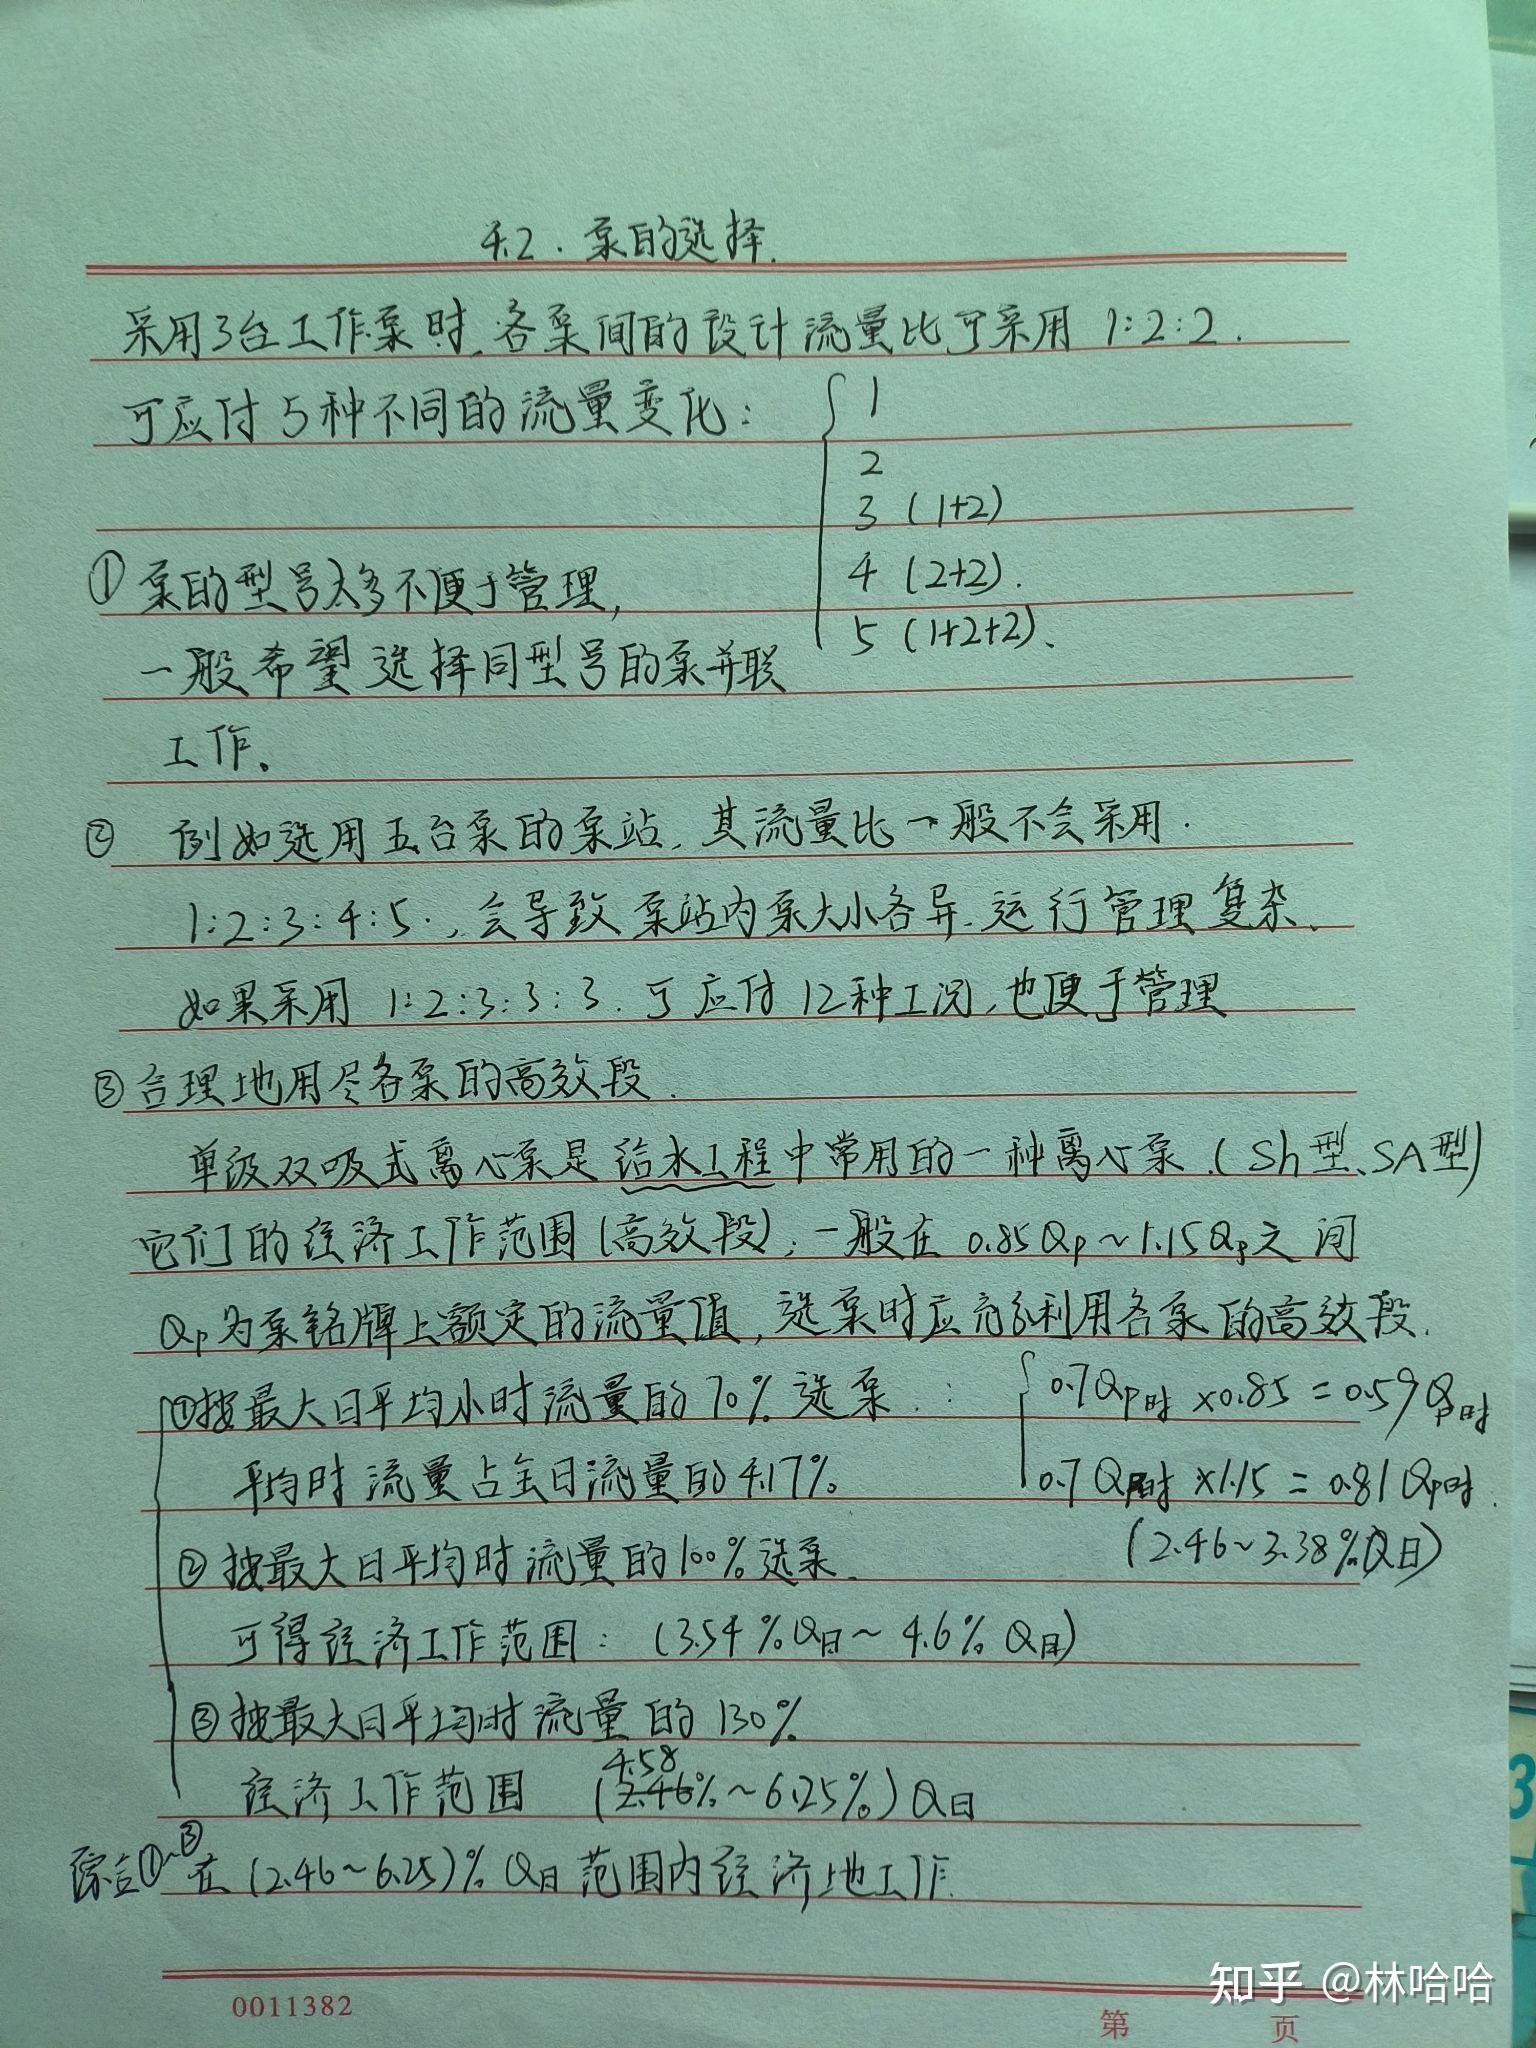 4.2. 泵的选择.
采用3台工作泵时,各泵间的设计流量比可采用 1:2:2.
可应付5种不同的流量变化: 1
2
3 (1+2)
4 (2+2).
5 (1+2+2).
① 泵的型号太多不便于管理,
一般希望选择同型号的泵并联
工作。
② 例如选用五台泵的泵站,其流量比一般不会采用.
1:2:3:4:5,会导致泵站内泵大小各异.运行管理复杂.
如果采用 1:2:3:3:3.可应付12种工况,也便于管理
③ 合理地用尽各泵的高效段.
单级双吸式离心泵是给水工程中常用的一种离心泵.(Sh型、SA型)
它们的经济工作范围(高效段),一般在 0.85Qp~1.15Qp之间
Qp为泵铭牌上额定的流量值,选泵时应充分利用各泵的高效段.
①按最大日平均小时流量的70%选泵.: 0.7Qp时 ×0.85=0.59Qp时
平均时流量占全日流量的4.17%. 0.7Qp时 ×1.15=0.81Qp时.
(2.46~3.38%Q日)
②按最大日平均时流量的100%选泵.
可得经济工作范围: (3.54%Q日~4.6%Q日)
③按最大日平均时流量的130%
4.58
经济工作范围 (2.46%~6.25%)Q日
综合①~③在(2.46~6.25)%Q日范围内经济地工作.
知乎 @林哈哈
0011382
第 页